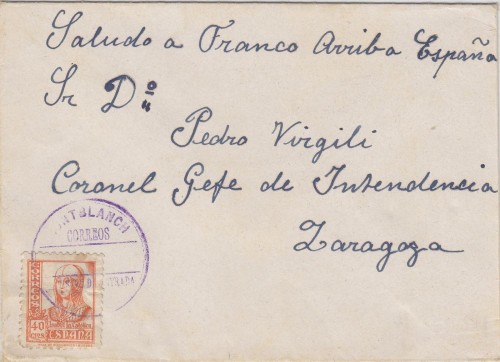 Saludo a Franco Arriba España
Sr Dº
Pedro Virgili
Coronel Gefe de Intendencia
Zaragoza
NTBLANCH
CORREOS
TRADA
40
CTS
Isabel la Católica
ESPAÑA